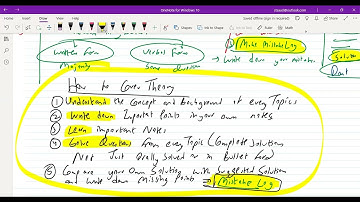 OneNote for Windows 10
Home Insert Draw View
③ Make MistakeLog
written form
verbal form
write down your mistakes
Majority
Same duration
Solution
Part
How to Cover Theory
① Understand the Concept and Background of every Topics
② Write down Important Points in your own notes
③ Learn important Notes
④ Solve Questions from every Topic (Complete Solution)
Not Just Orally Solved or in Bullet form
⑤ Compare your own Solution with Suggested Solution
and write down Missing Points ⇒ Mistake Log